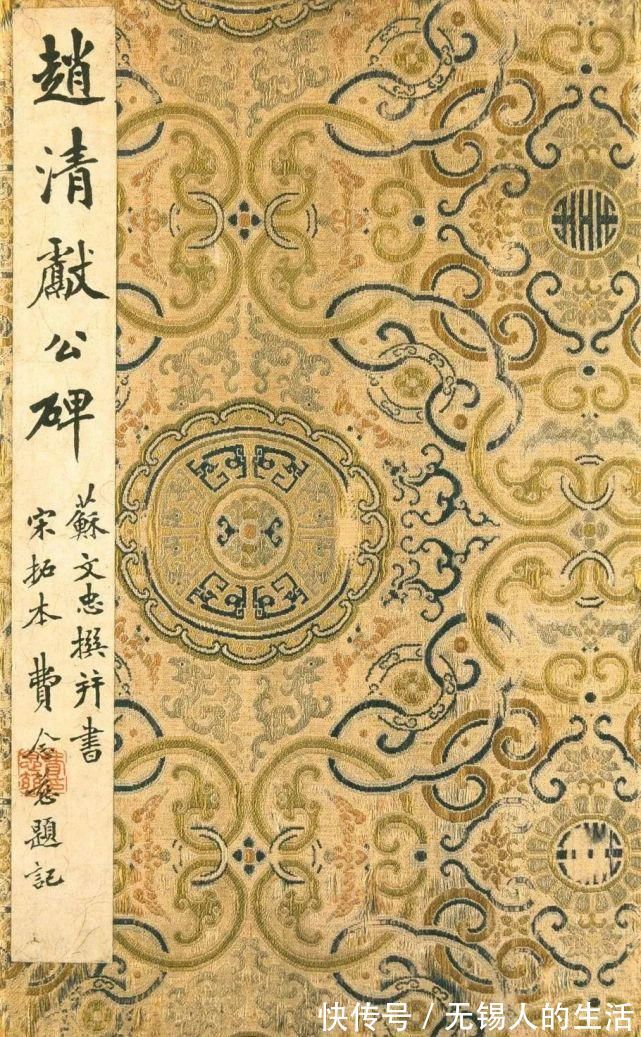 趙清獻公碑
蘇文忠撰并書
宋拓本 費念慈題記
快传号/无锡人的生活